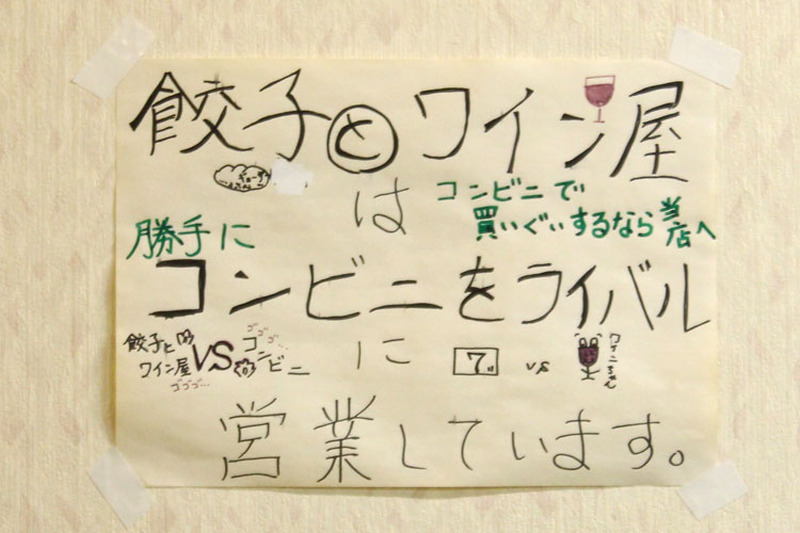 餃子とワイン屋
は
コンビニで
買いぐいするなら当店へ
勝手に
コンビニをライバル
に
餃子と
ワイン屋
VS
ゴゴゴ…
コンビニ
ゴゴゴ…
7
vs
ワインちゃん
営業しています。